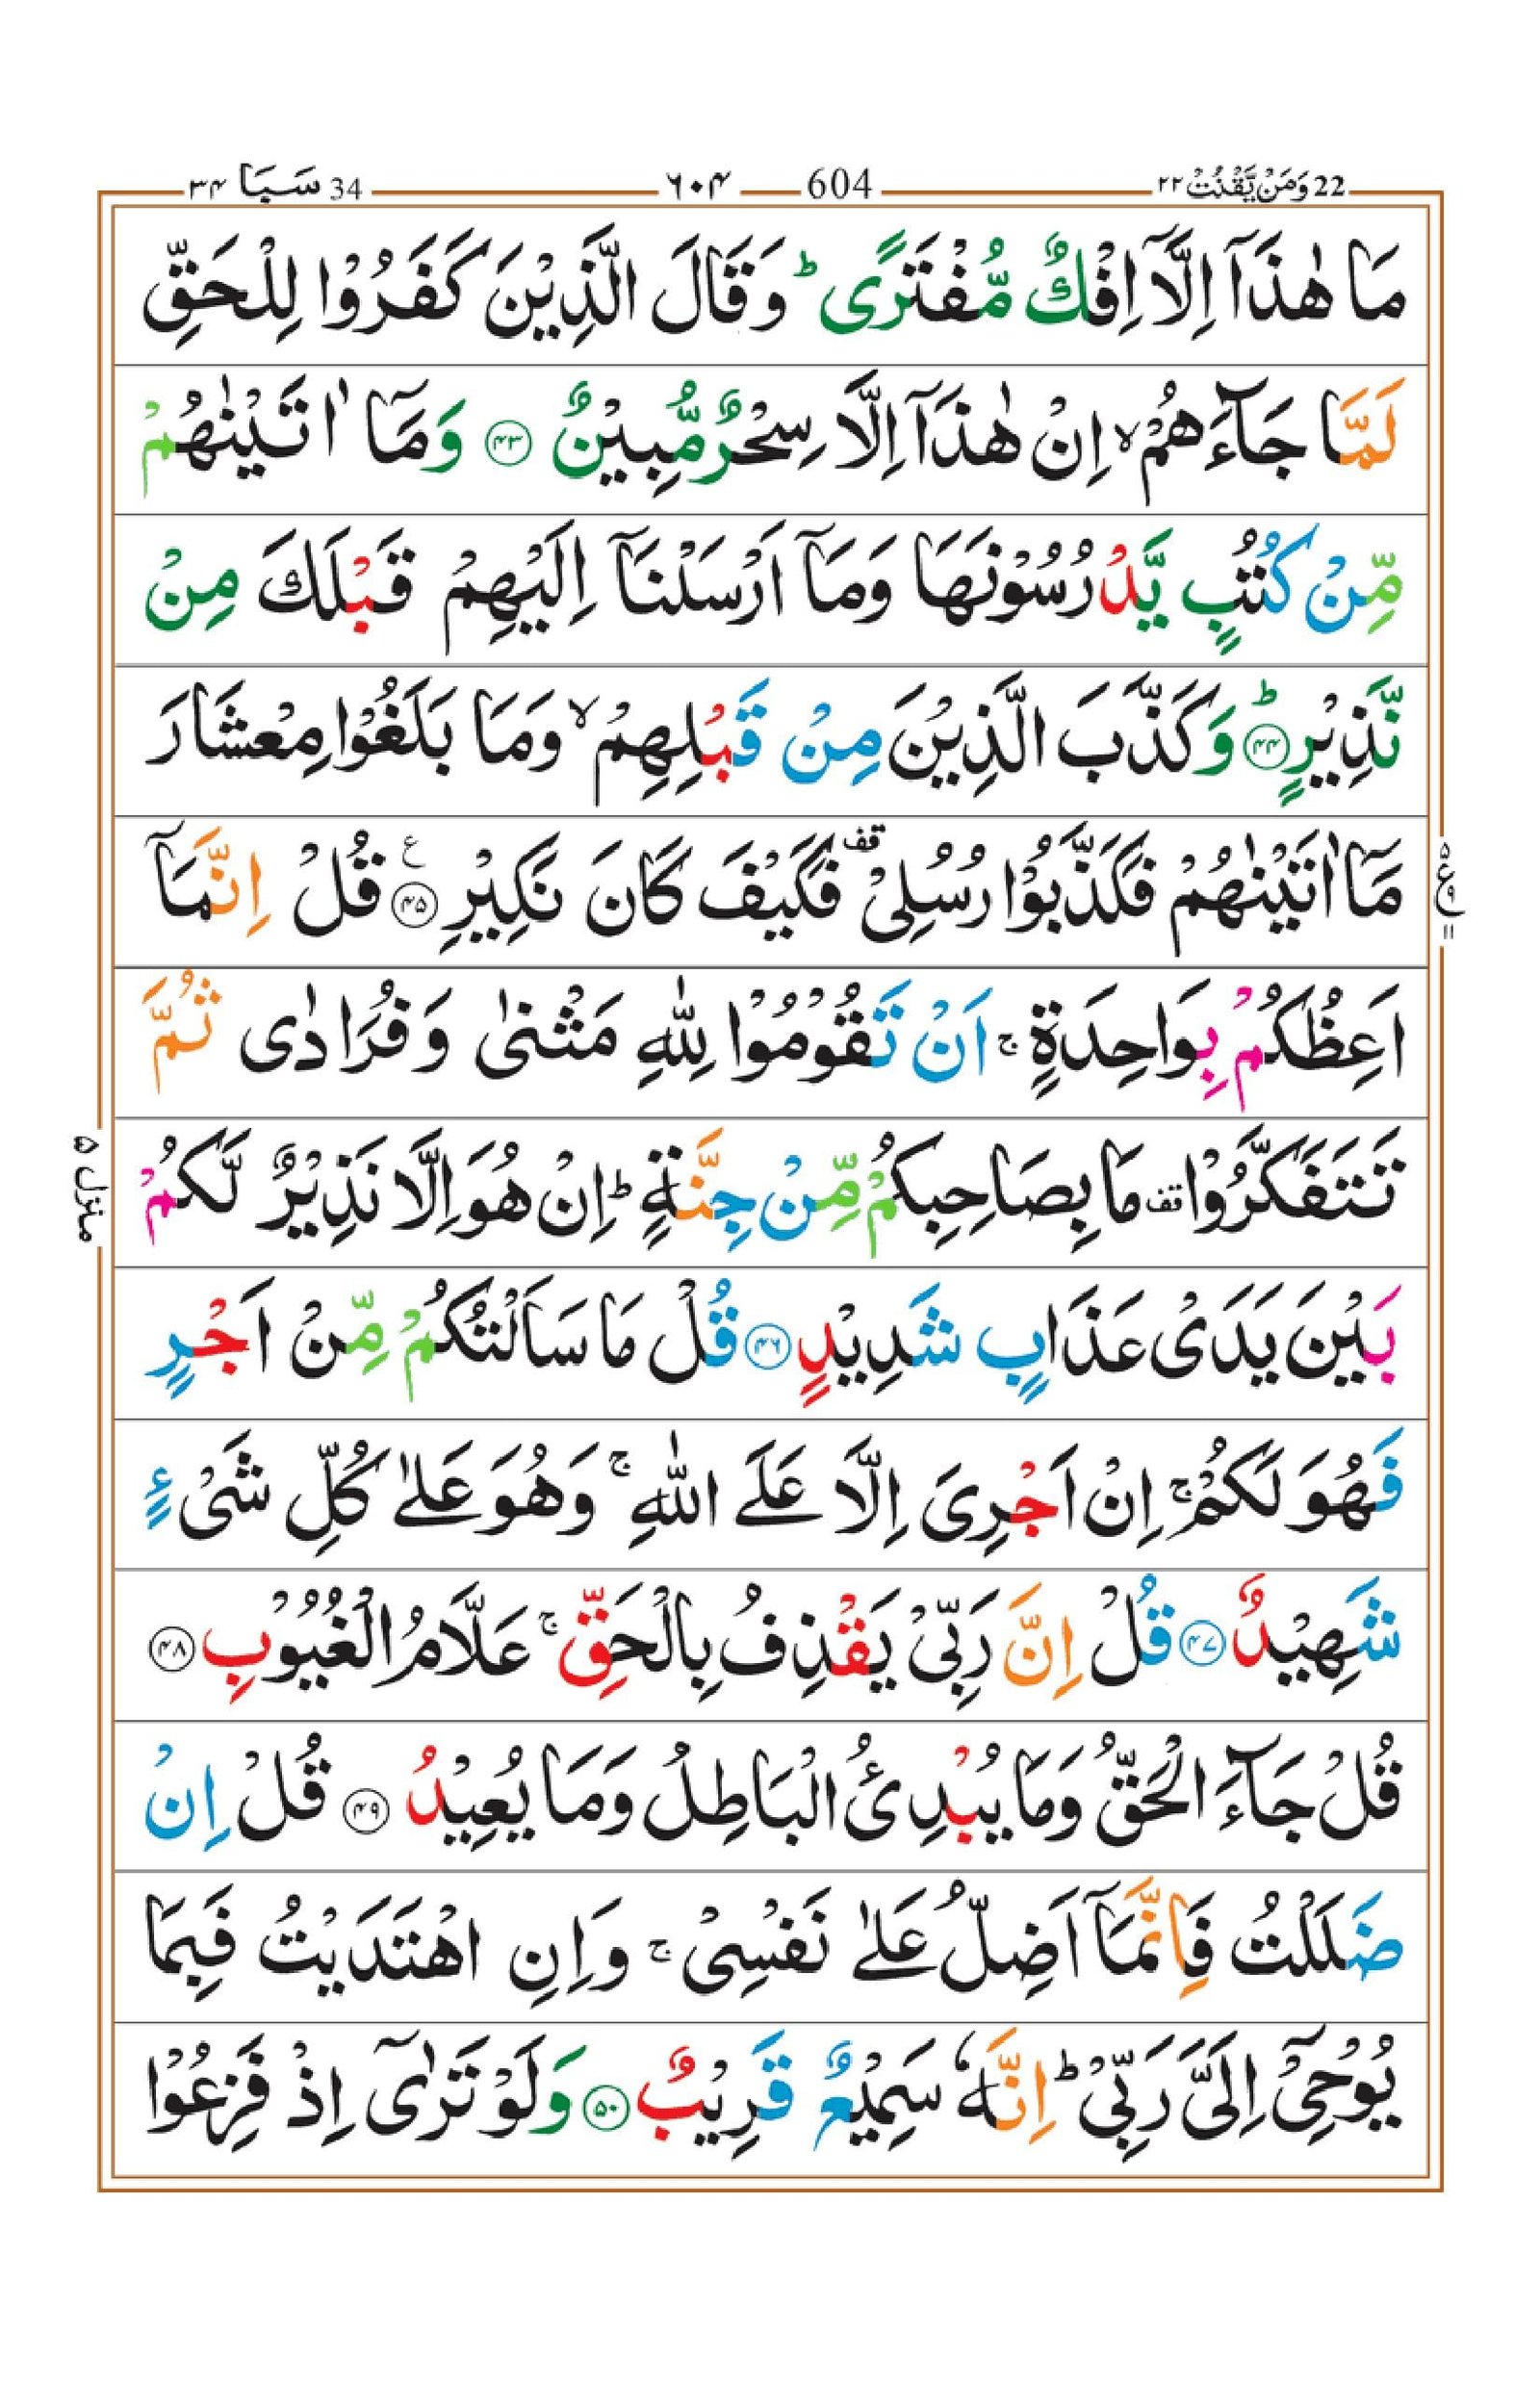 22 وَمَنْ يَّقْنُتْ ٢٢
604 ٦٠۴
34 سَبَا ٣۴
مَا هٰذَاۤ اِلَّاۤ اِفْكٌ مُّفْتَرًى ؕ وَقَالَ الَّذِيْنَ كَفَرُوْا لِلْحَقِّ
لَمَّا جَآءَهُمْ ۙ اِنْ هٰذَاۤ اِلَّا سِحْرٌ مُّبِيْنٌ ﴿۴۳﴾ وَمَاۤ اٰتَيْنٰهُمْ
مِّنْ كُتُبٍ يَّدْرُسُوْنَهَا وَمَاۤ اَرْسَلْنَاۤ اِلَيْهِمْ قَبْلَكَ مِنْ
نَّذِيْرٍ ؕ ﴿۴۴﴾ وَكَذَّبَ الَّذِيْنَ مِنْ قَبْلِهِمْ ۙ وَمَا بَلَغُوْا مِعْشَارَ
مَاۤ اٰتَيْنٰهُمْ فَكَذَّبُوْا رُسُلِىْ قف فَكَيْفَ كَانَ نَكِيْرِ ﴿۴۵﴾ ع قُلْ اِنَّمَاۤ
٥ ع ٩ ١١
اَعِظُكُمْ بِوَاحِدَةٍ ۚ اَنْ تَقُوْمُوْا لِلّٰهِ مَثْنٰى وَفُرَادٰى ثُمَّ
تَتَفَكَّرُوْا قف مَا بِصَاحِبِكُمْ مِّنْ جِنَّةٍ ؕ اِنْ هُوَ اِلَّا نَذِيْرٌ لَّكُمْ
منزل ۵
بَيْنَ يَدَىْ عَذَابٍ شَدِيْدٍ ﴿۴۶﴾ قُلْ مَا سَاَلْتُكُمْ مِّنْ اَجْرٍ
فَهُوَ لَكُمْ ۚ اِنْ اَجْرِىَ اِلَّا عَلَى اللّٰهِ ۚ وَهُوَ عَلٰى كُلِّ شَىْءٍ
شَهِيْدٌ ﴿۴۷﴾ قُلْ اِنَّ رَبِّىْ يَقْذِفُ بِالْحَقِّ ۚ عَلَّامُ الْغُيُوْبِ ﴿۴۸﴾
قُلْ جَآءَ الْحَقُّ وَمَا يُبْدِئُ الْبَاطِلُ وَمَا يُعِيْدُ ﴿۴۹﴾ قُلْ اِنْ
ضَلَلْتُ فَاِنَّمَاۤ اَضِلُّ عَلٰى نَفْسِىْ ۚ وَاِنِ اهْتَدَيْتُ فَبِمَا
يُوْحِىْۤ اِلَىَّ رَبِّىْ ؕ اِنَّهٗ سَمِيْعٌ قَرِيْبٌ ﴿۵۰﴾ وَلَوْ تَرٰٓى اِذْ فَزِعُوْا